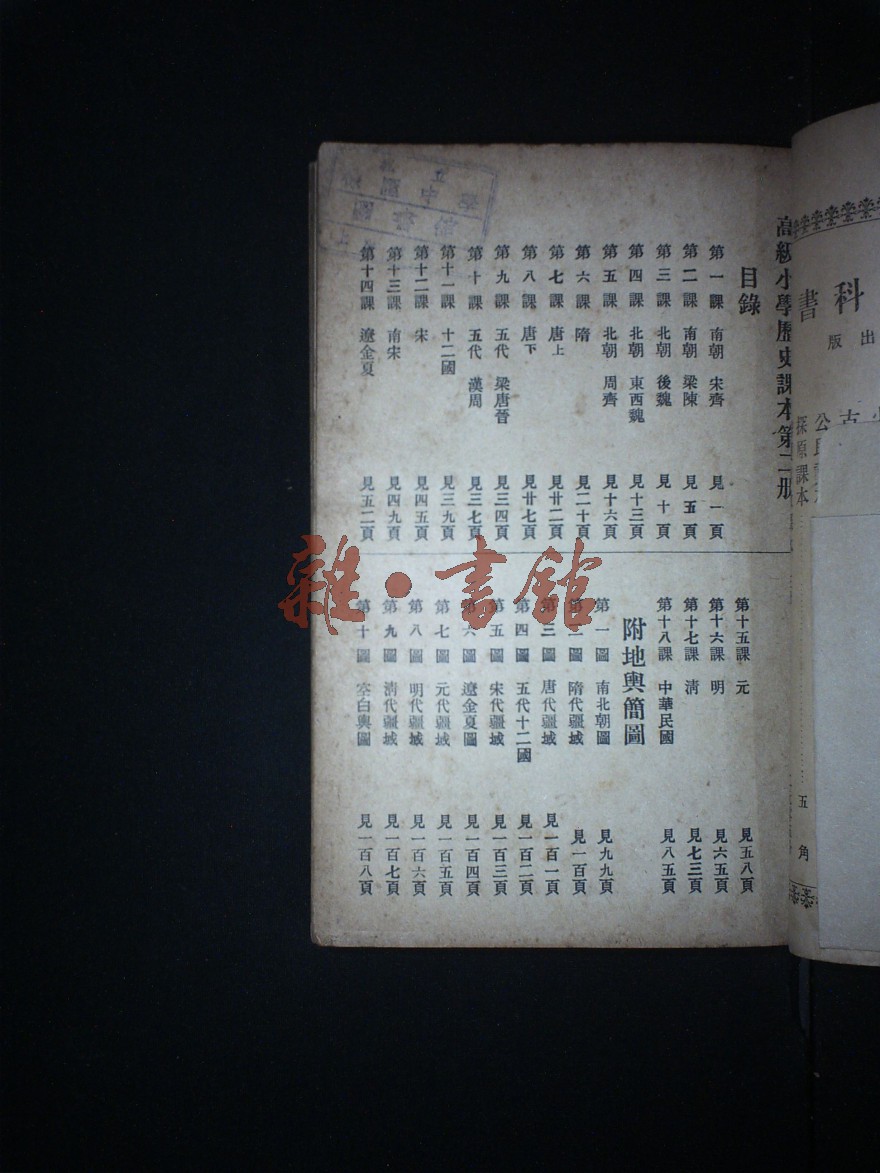 高級小學歷史課本第二册
目錄
第一課 南朝 宋齊 見一頁
第二課 南朝 梁陳 見五頁
第三課 北朝 後魏 見十頁
第四課 北朝 東西魏 見十三頁
第五課 北朝 周齊 見十六頁
第六課 隋 見二十頁
第七課 唐上 見廿二頁
第八課 唐下 見廿七頁
第九課 五代 梁唐晉 見三四頁
第十課 五代 漢周 見三七頁
第十一課 十二國 見三九頁
第十二課 宋 見四五頁
第十三課 南宋 見四九頁
第十四課 遼金夏 見五二頁
第十五課 元 見五八頁
第十六課 明 見六五頁
第十七課 清 見七三頁
第十八課 中華民國 見八五頁
附地輿簡圖
第一圖 南北朝圖 見九九頁
第二圖 隋代疆域 見一百頁
第三圖 唐代疆域 見一百一頁
第四圖 五代十二國 見一百二頁
第五圖 宋代疆域 見一百三頁
第六圖 遼金夏圖 見一百四頁
第七圖 元代疆域 見一百五頁
第八圖 明代疆域 見一百六頁
第九圖 清代疆域 見一百七頁
第十圖 空白輿圖 見一百八頁
科書
出版
探原課本
五角
雜·書館